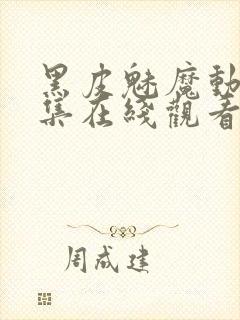 黑皮魅魔動
集在綫觀看
周成建